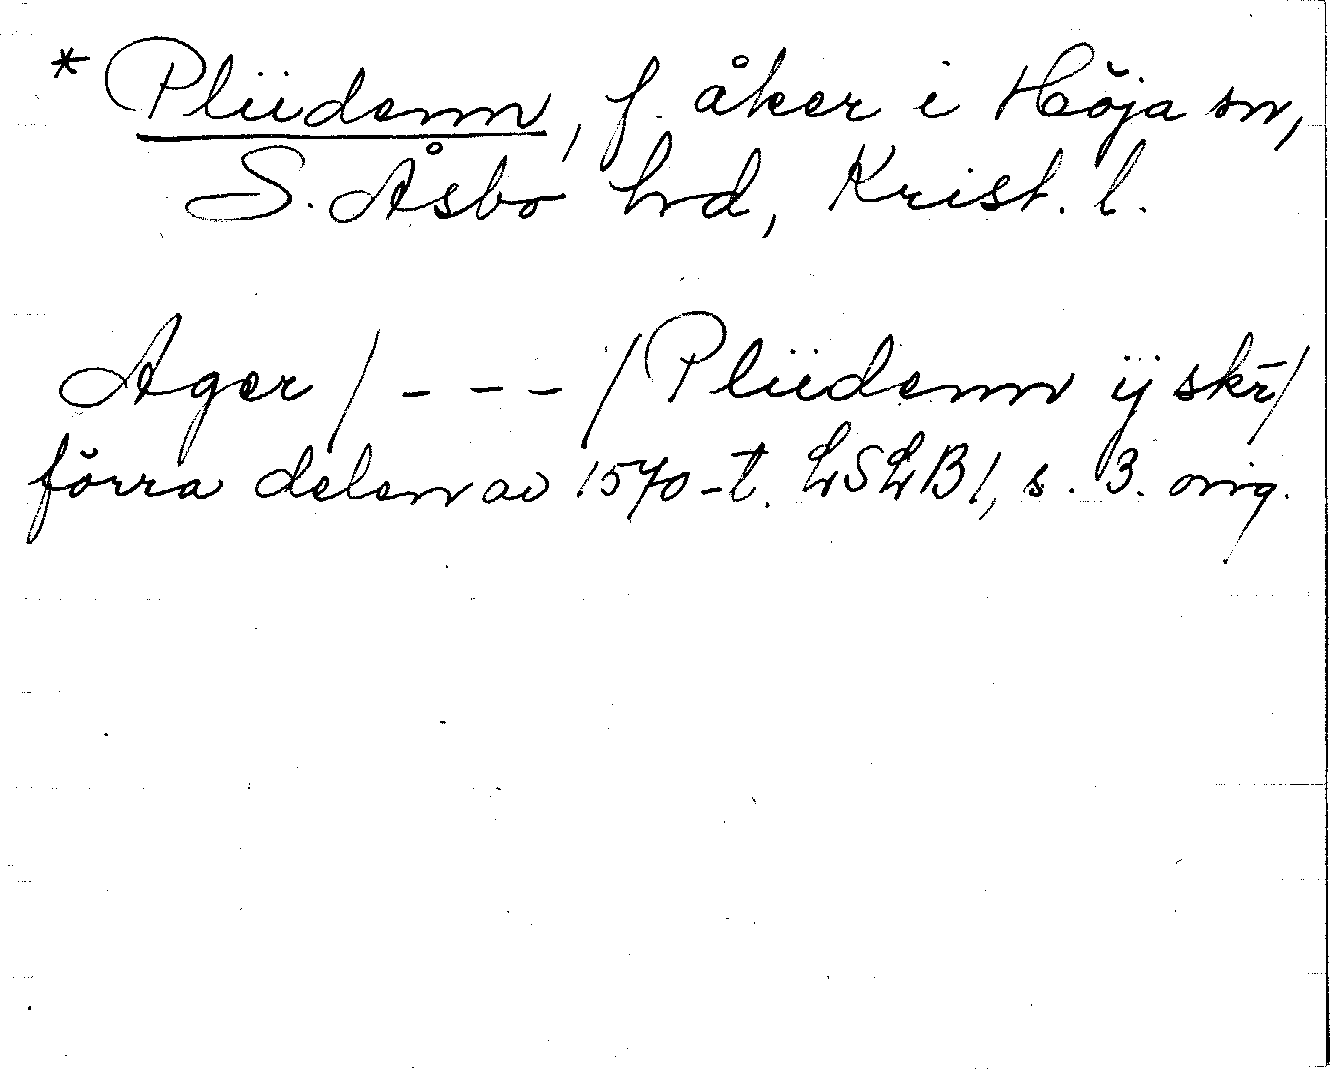 * Plüdenn, f. åker i Höja sn,
S. Åsbo hd, Krist. l.
Ager / - - - / Plüdenn ÿ skr̄/
förra delen av 1570-t. LSLB1, s. 3. orig.